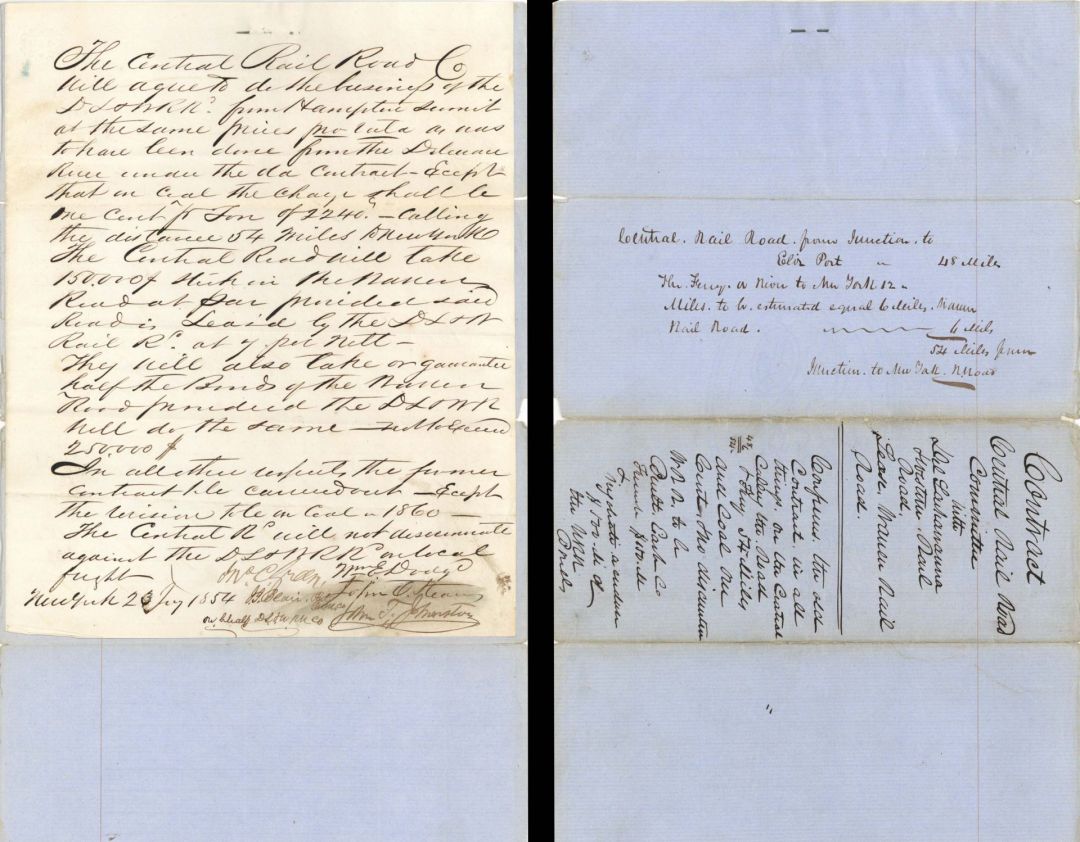 The Central Rail Road Co
Will agree to do the business of the
D L & W R Rd. from Hampton summit
at the same prices pro rata as was
to have been done from the Delaware
River under the old contract - Ecept
that on Coal the charge shall be
one Cent pr Ton of 2240. - Calling
the distance 54 Miles to New York
The Central Road will take
150.000$ stock in the Warren
Road at par provided said
Road is Leas'd by the D L & W
Rail Rd. at 7 per Nett -
They will also take or guarantee
half the Bonds of the Warren
Road provided the D L & W R R
will do the same - not to Exceed
250.000 $
In all other respects the former
Contract be carried out - Ecept
the revision to be on Coal in 1860 -
The Central Rd will not discriminate
against the D L & W R Rd on local
fright
Wm E Dodge
New York 23 1854
John T. Johnston
on behalf D L & W RR Co
Central. Rail Road. from Junction. to
Eliz Port " 48 Miles
The Ferry. or River to New York 12 -
Miles. to be. estimated equal 6 Miles. Warren
Rail Road. 6 Miles
54 Miles from
Junction. to New York. R Road
Contract
Central Rail Road
Committee
with
Lackawanna
Western Rail
Road.
Lease. Warren Rail
Road.
Confirms the old
Contract in all
things. on the Central
Calling the Road
& Fery 54 Miles
and Coal one
Cent no discrimination
48
6
54